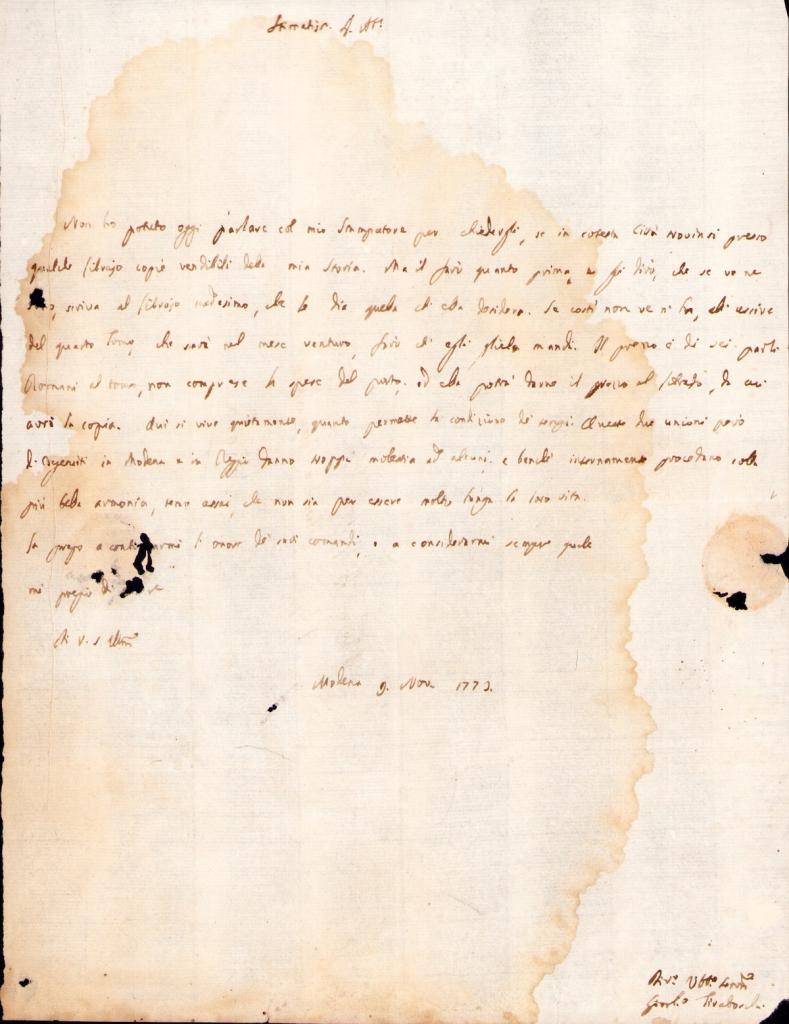 Non ho potuto oggi parlare col mio Stampatore per chiedergli, se in cotesta Città trovinsi presso
qualche librajo copie vendibili della mia Storia. Ma il farò quanto prima, e gli dirò, che se ve ne
sono, scriva al librajo medesimo, che le dia quella ch'ella desidera. Se costì non ve n'ha, all'uscire
del quarto Tomo, che sarà nel mese venturo, farò ch'egli gliela mandi. Il prezzo è di sei paoli
Romani al tomo, non comprese le spese del porto, ed ella potrà darne il prezzo al librajo, da cui
avrà la copia. Qui si vive quietamente, quanto permette la condizione de' tempi. Queste due unioni però
di Gesuiti in Modena e in Reggio danno troppa molestia ad alcuni, e benchè internamente procedano colla
più bella armonia, temo assai, che non sia per essere molto lunga la loro vita.
La prego a continuarmi l'onore de' suoi comandi, e a considerarmi sempre quale
mi pregio di
Di V. S. Illma
Modena 9. Nov. 1773.
Girol.o Tiraboschi